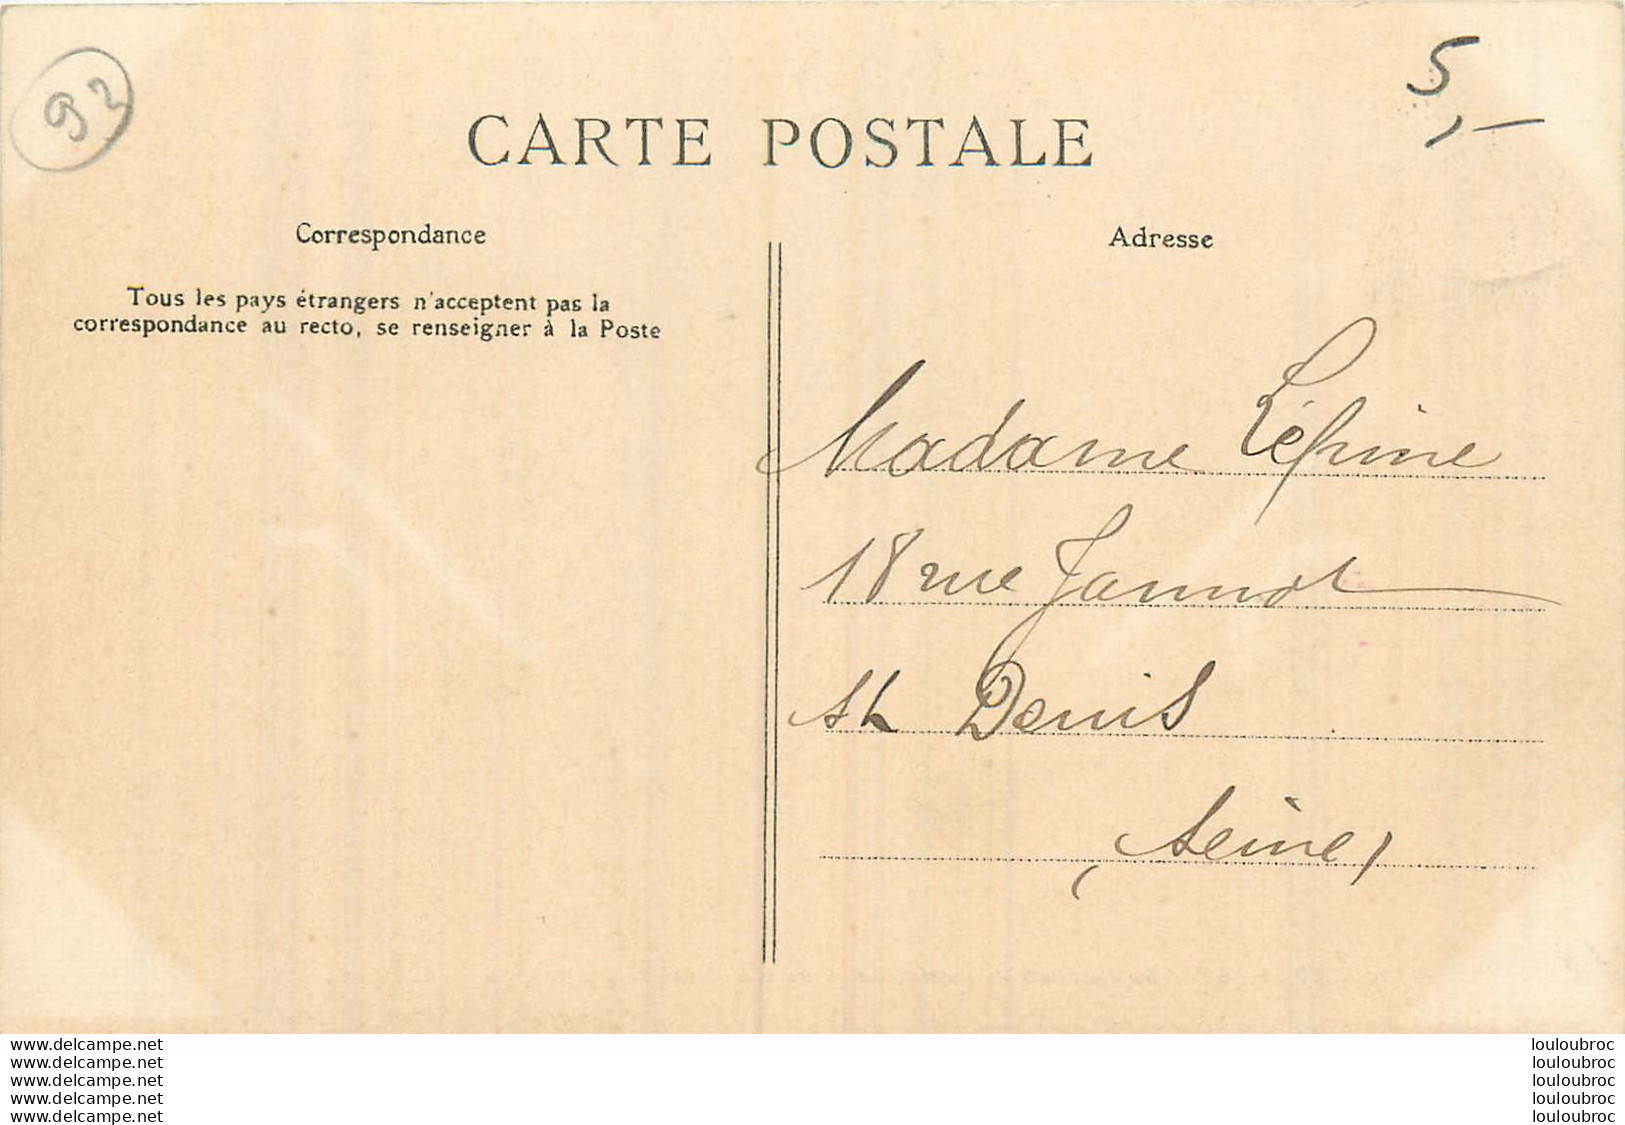 92
5,—
CARTE POSTALE
Correspondance
Adresse
Tous les pays étrangers n'acceptent pas la
correspondance au recto, se renseigner à la Poste
Madame Lépine
18 rue Jannot
St Denis
(Seine)
www.delcampe.net
www.delcampe.net
www.delcampe.net
www.delcampe.net
www.delcampe.net
louloubroc
louloubroc
louloubroc
louloubroc
louloubroc